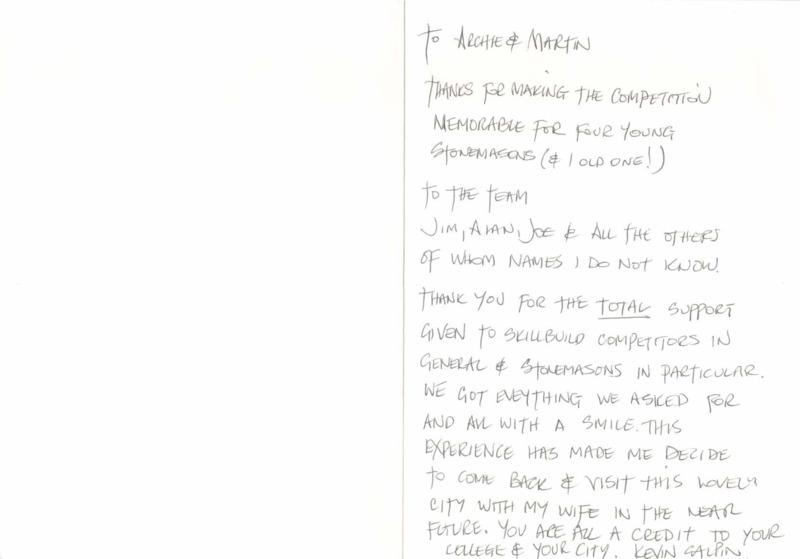 TO ARCHIE & MARTIN
THANKS FOR MAKING THE COMPETITION
MEMORABLE FOR FOUR YOUNG
STONEMASONS (& 1 OLD ONE!)
TO THE TEAM
JIM, ALAN, JOE & ALL THE OTHERS
OF WHOM NAMES I DO NOT KNOW.
THANK YOU FOR THE TOTAL SUPPORT
GIVEN TO SKILLBUILD COMPETITORS IN
GENERAL & STONEMASONS IN PARTICULAR.
WE GOT EVEYTHING WE ASKED FOR
AND ALL WITH A SMILE. THIS
EXPERIENCE HAS MADE ME DECIDE
TO COME BACK & VISIT THIS LOVELY
CITY WITH MY WIFE IN THE NEAR
FUTURE. YOU ARE ALL A CREDIT TO YOUR
COLLEGE & YOUR CITY. KEVIN CALPIN